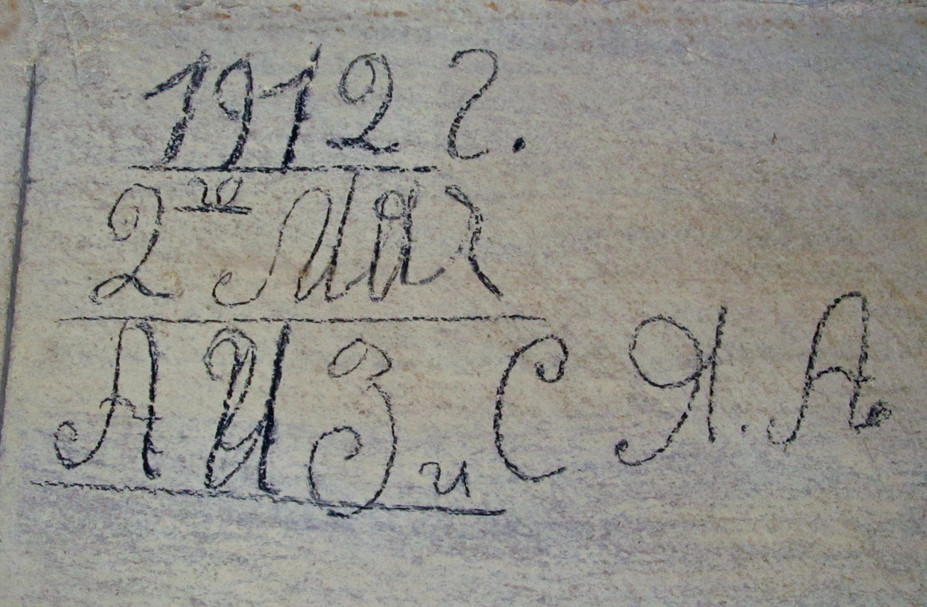 1912 г.
2го Мая
А И З и С Я. А.